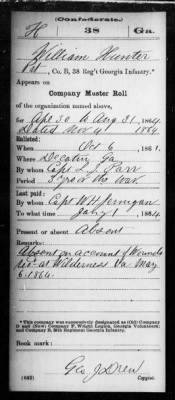 (Confederate.)
H 38 Ga.
William Hunter
Pvt, Co. B, 38 Reg't Georgia Infantry.*
Appears on
Company Muster Roll
of the organization named above,
for Apl 30 to Aug 31, 1864.
Dated Nov 4 1864.
Enlisted:
When Oct 6, 1861.
Where Decatur Ga
By whom Capt L. J. Farr
Period 3 years or War
Last paid:
By whom Capt W H Jernigan
To what time Jany 1, 1864.
Present or absent Absent
Remarks:
Absent on account of Wounds
rec'd at Wilderness Va. May
6. 1864.
*This company was successively designated as (Old) Company
D and (New) Company F, Wright Legion, Georgia Volunteers;
and Company B, 38th Regiment Georgia Infantry.
Book mark:
Geo. J. Drew
(642) Copyist.